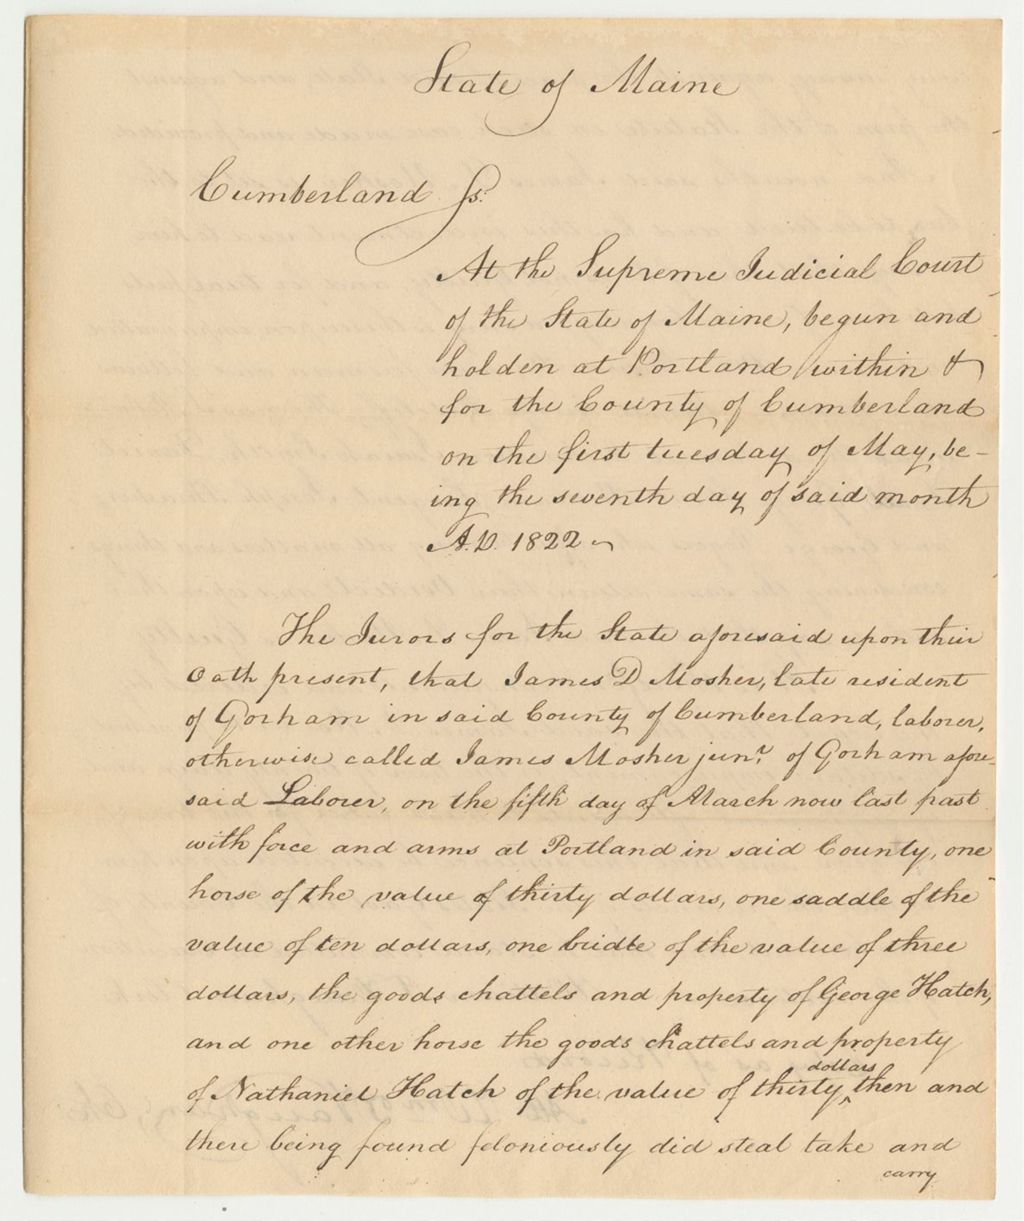 State of Maine
Cumberland Ss.
At the Supreme Judicial Court
of the State of Maine, begun and
holden at Portland within &
for the County of Cumberland
on the first tuesday of May, be-
ing the seventh day of said month
A.D. 1822
The Jurors for the State aforesaid upon their
Oath present, that James D Mosher, late resident
of Gorham in said County of Cumberland, laborer,
otherwise called James Mosher junr. of Gorham afore-
said Laborer, on the fifth day of March now last past
with force and arms at Portland in said County, one
horse of the value of thirty dollars, one saddle of the
value of ten dollars, one bridle of the value of three
dollars, the goods chattels and property of George Hatch,
and one other horse the goods chattels and property
of Nathaniel Hatch of the value of thirty dollars, then and
there being found feloniously did steal take and
carry